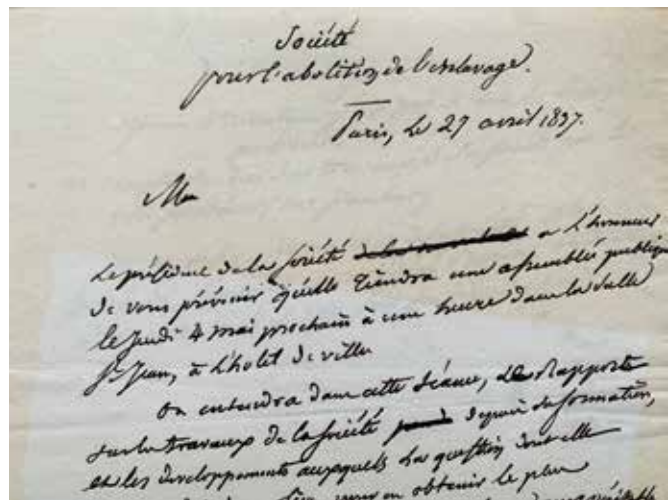 Société
pour l'abolition de l'esclavage.
Paris, le 27 avril 1837.
M
Le président de la société a l'honneur
de vous prévenir qu'elle tiendra une assemblée publique
le jeudi 4 mai prochain à une heure dans la salle
St Jean, à l'hotel de ville
On entendra dans cette séance, Rapports
sur les travaux de la société depuis sa formation,
et les développements auxquels la question dont elle
obtenir le plan